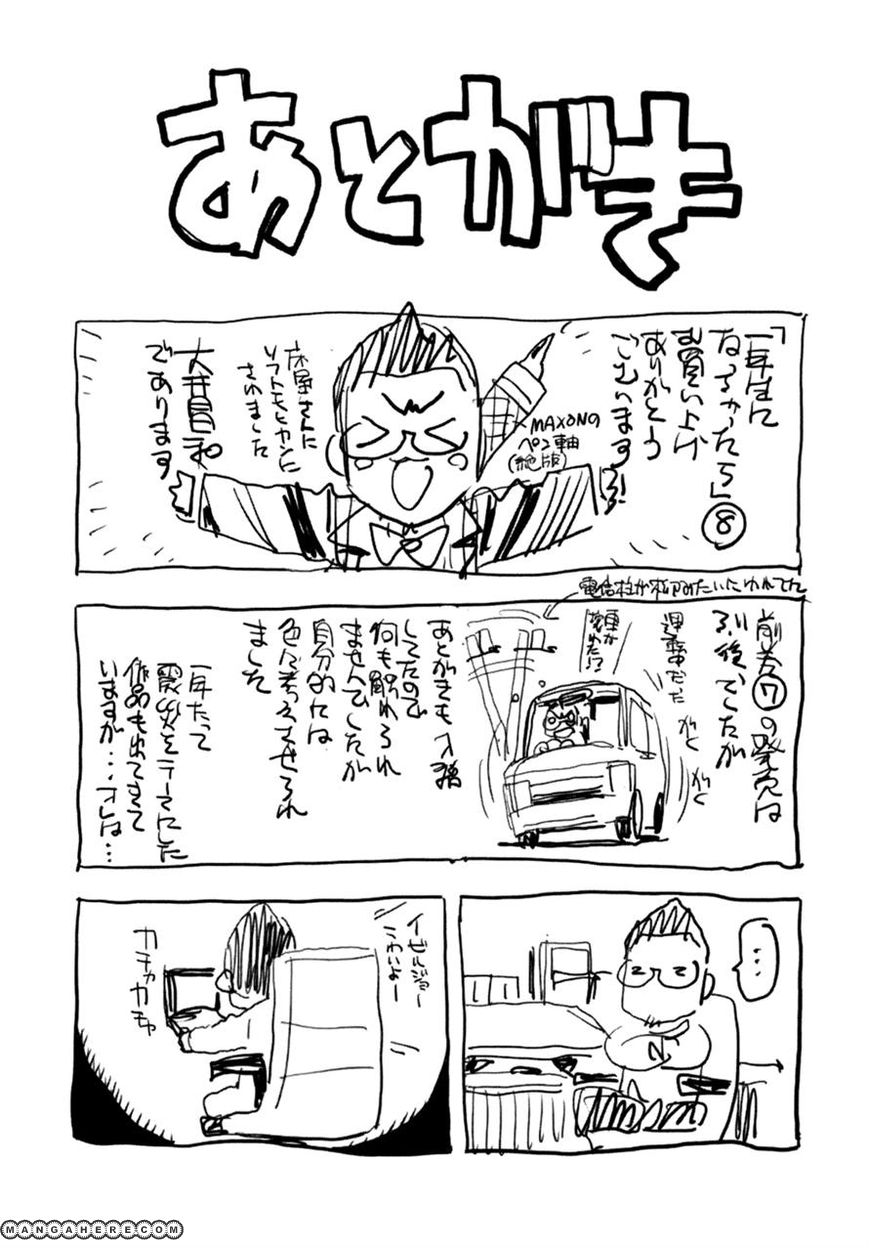 あとがき
「一年生に
なっちゃったら」⑧
お買い上げ
ありがとう
ございます!
MAXONの
ペン軸
(絶版)
床屋さんに
ソフトモヒカンに
されました
大井昌和
であります
電信柱が松みたいにゆれてん
前巻⑦の発売は
震災後でしたが
運転中だった
ガク
ガク
車が
壊れた!?
あとがきも入稿
してたので
何も触れられ
ませんでしたが
自分的には
色々考えさせられ
ました
一年たって
震災をテーマにした
作品も出てきて
いますが…オレは…
…
イゼルジョー
こわいよー
カチャカチャ
MANGAHERE.COM